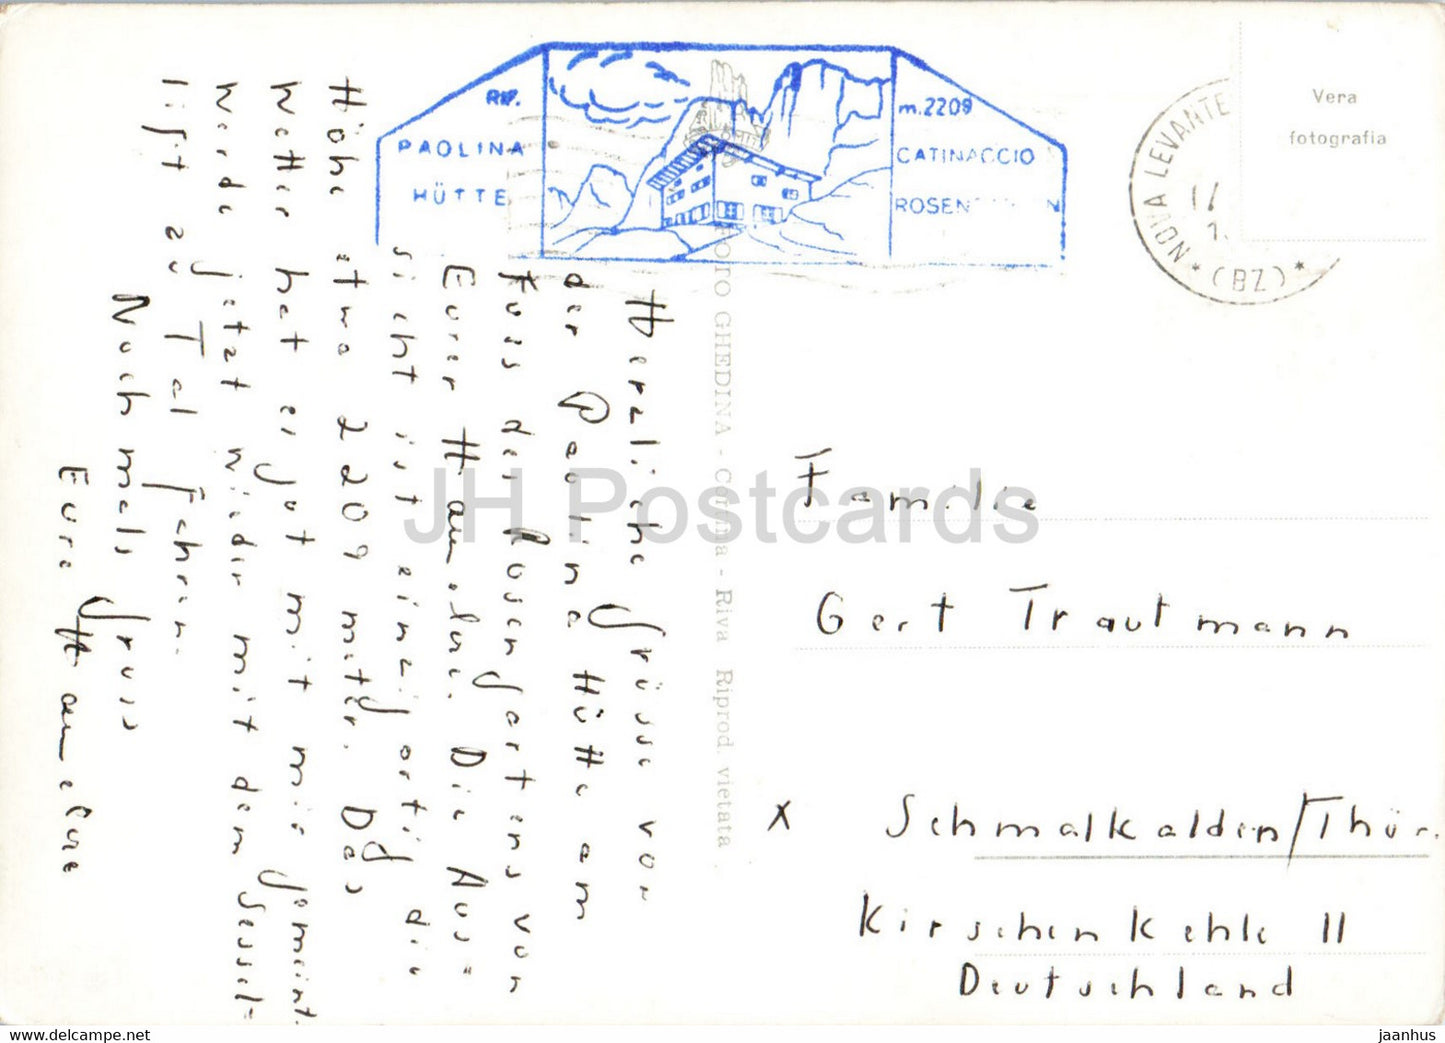 RIF.
PAOLINA
HÜTTE
m.2209
CATINACCIO
NOVA LEVANTE
* (BZ) *
Vera
fotografia
FOTO GHEDINA - Cortina - Riva Riprod. vietata
Herzliche Grüsse von
der Paolina Hütte am
Fuss der Rosengartens von
Eurer Hannelore. Die Aus=
sicht ist einzigartig die
Höhe etwa 2209 meter. Das
Wetter hat es gut mit mir gemeint.
Werde jetzt wieder mit dem Sessel=
lift zu Tal fahren.
Nochmals Gruss
Eure Hannelore
Familie
Gert Trautmann
x Schmalkalden/Thür.
Kirschenkehle 11
Deutschland
JH Postcards
www.delcampe.net
jaanhus